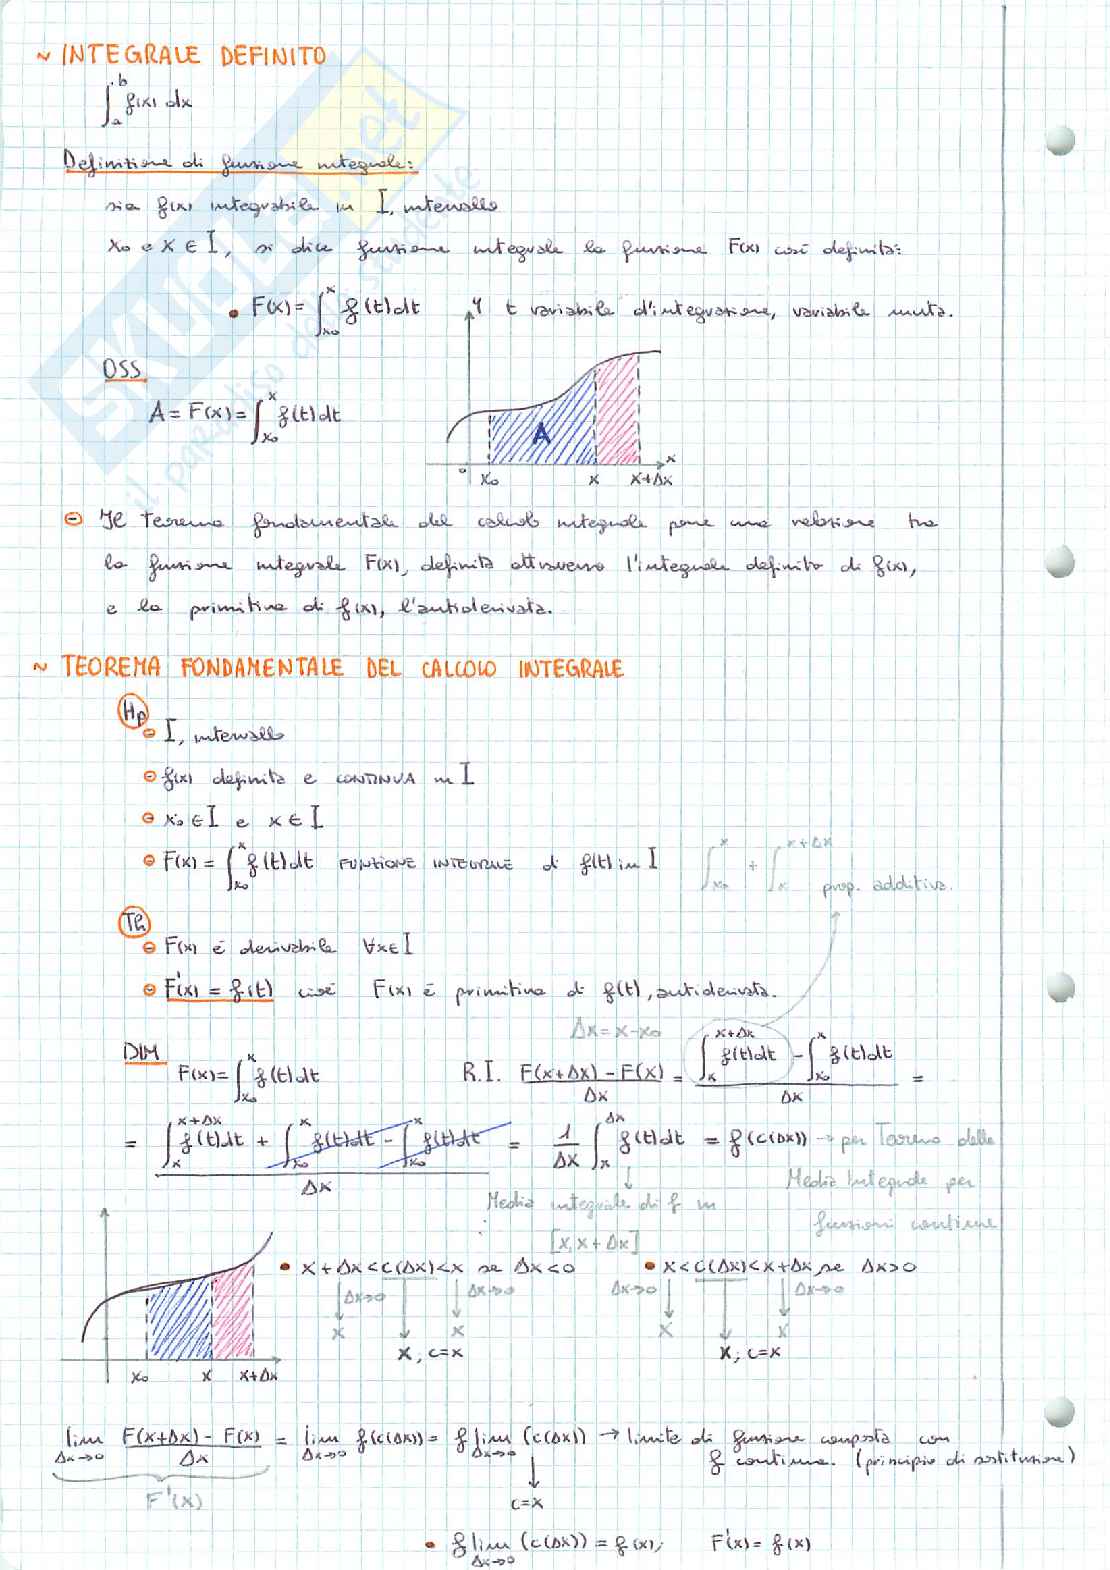 ~ INTEGRALE DEFINITO
∫_a^b f(x) dx
Definizione di funzione integrale:
sia f(x) integrabile in I, intervallo
x₀ e x ∈ I, si dice funzione integrale la funzione F(x) così definita:
• F(x) = ∫_{x₀}^x f(t)dt
y t variabile d'integrazione, variabile muta.
OSS
A = F(x) = ∫_{x₀}^x f(t)dt
A
0 x₀ x x+Δx x
⊖ Il Teorema fondamentale del calcolo integrale pone una relazione tra
la funzione integrale F(x), definita attraverso l'integrale definito di f(x),
e la primitiva di f(x), l'antiderivata.
~ TEOREMA FONDAMENTALE DEL CALCOLO INTEGRALE
Hp
⊖ I, intervallo
⊖ f(x) definita e CONTINUA in I
⊖ x₀ ∈ I e x ∈ I
⊖ F(x) = ∫_{x₀}^x f(t)dt FUNZIONE INTEGRALE di f(t) in I
∫_{x₀}^x + ∫_x^{x+Δx} prop. additiva.
Th
⊖ F(x) è derivabile ∀x∈I
⊖ F'(x) = f(t) cioè F(x) è primitiva di f(t), antiderivata.
Δx = x-x₀
DIM
F(x) = ∫_{x₀}^x f(t)dt
R.I. F(x+Δx) - F(x) / Δx = ∫_x^{x+Δx} f(t)dt - ∫_{x₀}^x f(t)dt / Δx =
= ∫_x^{x+Δx} f(t)dt + ∫_{x₀}^x f(t)dt - ∫_{x₀}^x f(t)dt / Δx = 1/Δx ∫_x^{Δx} f(t)dt = f(c(Δx)) → per Teorema della
Media Integrale per
funzioni continue
Media integrale di f in
[x, x+Δx]
• x+Δx < c(Δx) < x se Δx<0
Δx→0 Δx→0
x x
x, c=x
• x < c(Δx) < x+Δx, se Δx>0
Δx→0 Δx→0
x x
x, c=x
x₀ x x+Δx
lim_{Δx→0} F(x+Δx) - F(x) / Δx = lim_{Δx→0} f(c(Δx)) = f lim_{Δx→0} (c(Δx)) → limite di funzione composta con
f continua. (principio di sostituzione)
F'(x)
c=x
• f lim_{Δx→0} (c(Δx)) = f(x), F'(x) = f(x)
SKUOLA.net
il paradiso dello studente